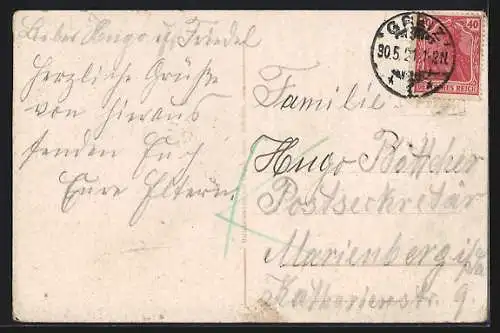 Lieber Hugo u. Friedel
herzliche Grüße
von hieraus
senden Euch
Eure Eltern.
GREIZ
30.5.21. 1-2N.
40
DEUTSCHES REICH
Familie
Hugo Böttcher
Postseckretär
Marienberg i/Sa
Katharienstr. 9.